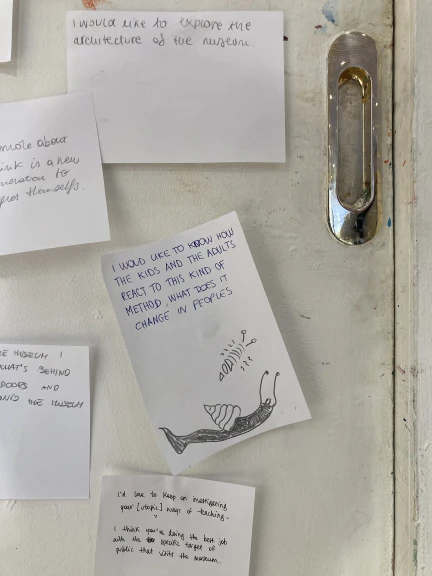 I would like to explore the
architecture of the museum
more about
ink is a new
neration to
themselfs.
I WOULD LIKE TO KNOW HOW
THE KIDS AND THE ADULTS
REACT TO THIS KIND OF
METHOD. WHAT DOES IT
CHANGE IN PEOPLES
MUSEUM I
WHAT'S BEHIND
DOORS AND
THE MUSEUM
I'd like to keep on investigating
your [utopic] ways of teaching.
I think you're doing the best job
with the specific target of
public that visits the museum.